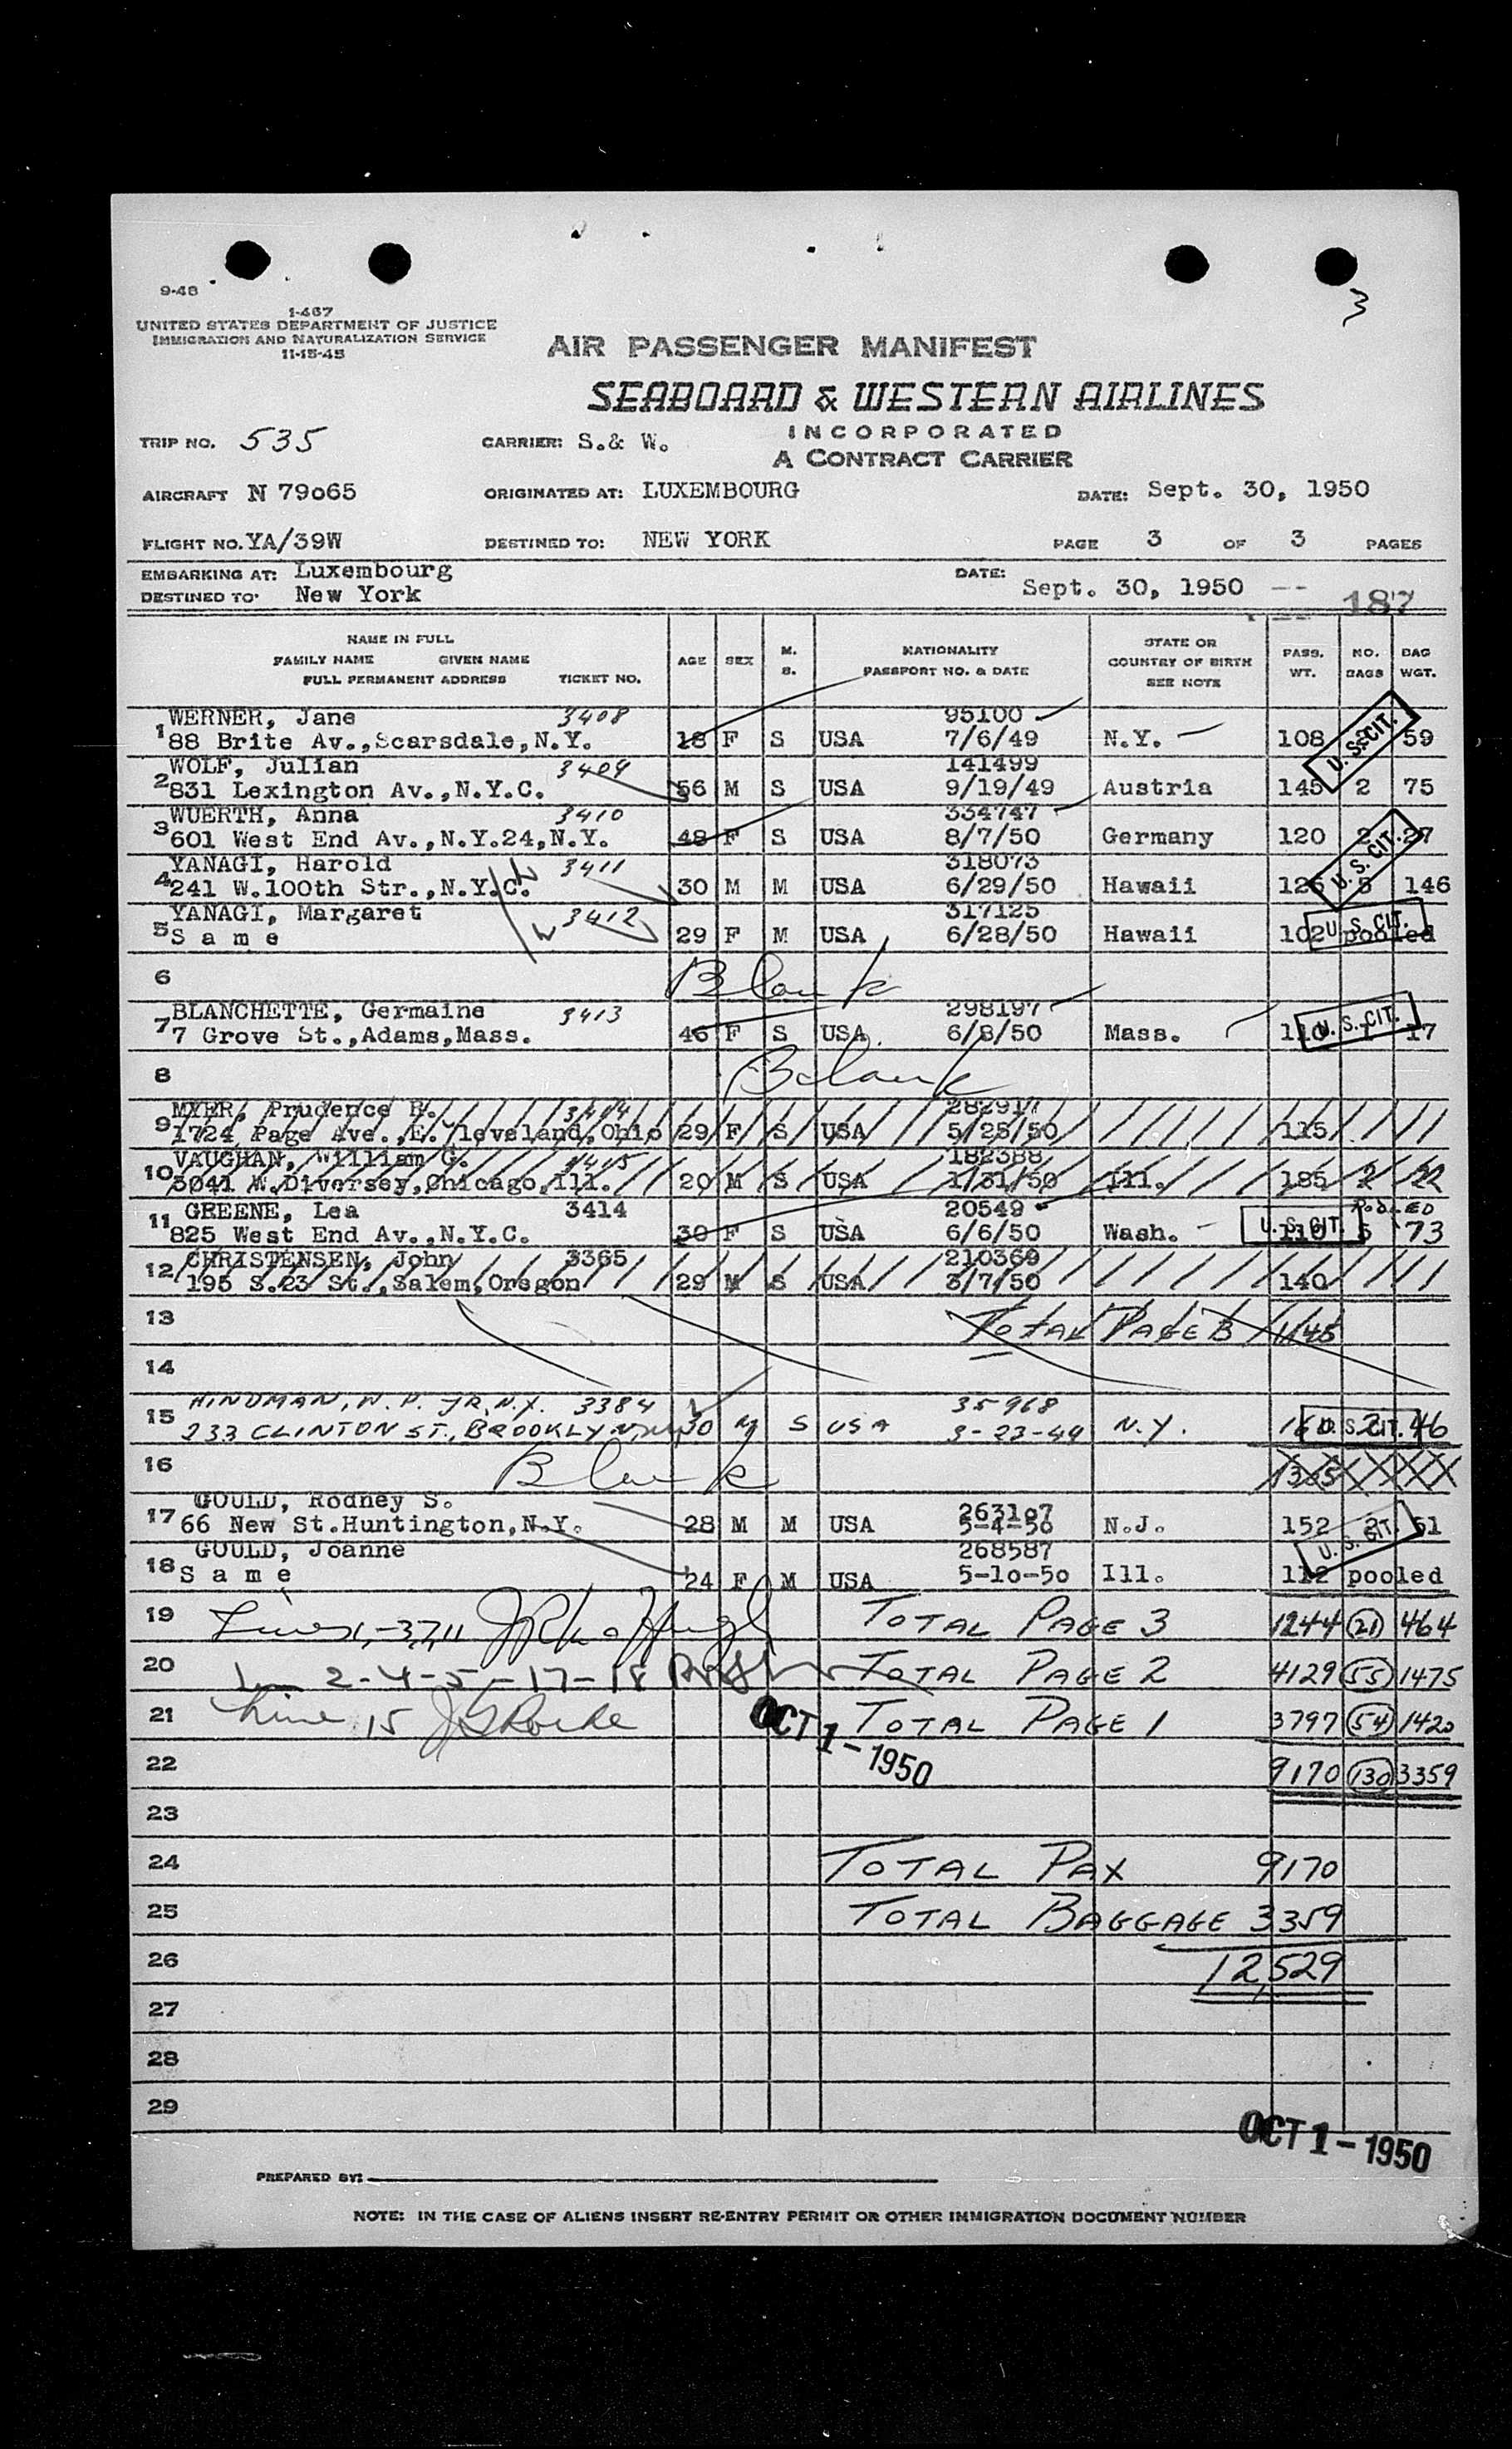 3
9-48
1-467
UNITED STATES DEPARTMENT OF JUSTICE
IMMIGRATION AND NATURALIZATION SERVICE
11-15-45
AIR PASSENGER MANIFEST
SEABOARD & WESTERN AIRLINES
INCORPORATED
A CONTRACT CARRIER
TRIP NO. 535 CARRIER: S.& W.
AIRCRAFT N 79065 ORIGINATED AT: LUXEMBOURG DATE: Sept. 30, 1950
FLIGHT NO. YA/39W DESTINED TO: NEW YORK PAGE 3 OF 3 PAGES
EMBARKING AT: Luxembourg DATE: Sept. 30, 1950
DESTINED TO: New York 187
NAME IN FULL
FAMILY NAME GIVEN NAME
FULL PERMANENT ADDRESS TICKET NO. AGE SEX M. S. NATIONALITY PASSPORT NO. & DATE STATE OR COUNTRY OF BIRTH SEE NOTE PASS. WT. NO. BAGS BAG WGT.
WERNER, Jane 3408 95100
1 88 Brite Av.,Scarsdale,N.Y. 18 F S USA 7/6/49 N.Y. 108 U. S. CIT. 59
WOLF, Julian 3409 141499
2 831 Lexington Av.,N.Y.C. 56 M S USA 9/19/49 Austria 145 2 75
WUERTH, Anna 3410 334747
3 601 West End Av.,N.Y.24,N.Y. 48 F S USA 8/7/50 Germany 120 2 27
YANAGI, Harold 3411 318073 U. S. CIT.
4 241 W.100th Str.,N.Y.C. 30 M M USA 6/29/50 Hawaii 126 146
YANAGI, Margaret 3412 317125
5 S a m e 29 F M USA 6/28/50 Hawaii 102 U. S. CIT. pooled
6 Blank
BLANCHETTE, Germaine 3413 298197
7 7 Grove St.,Adams,Mass. 46 F S USA 6/8/50 Mass. 110 U. S. CIT. 17
8 Blank
MYER, Prudence R. 3414 282917
9 1724 Page Ave.,E.Cleveland,Ohio 29 F S USA 5/25/50 115
VAUGHAN, William G. 3415 182388
10 5041 W.Diversey,Chicago,Ill. 20 M S USA 1/31/50 Ill. 185 2 22
GREENE, Lea 3414 20549 POOLED
11 825 West End Av.,N.Y.C. 30 F S USA 6/6/50 Wash. U. S. CIT. 110 5 73
CHRISTENSEN, John 3365 210369
12 195 S.23 St.,Salem,Oregon 29 M S USA 3/7/50 140
13 TOTAL PAGE 3 1145
14
HINDMAN, W. P. JR. N.Y. 3384 35968
15 233 CLINTON ST., BROOKLYN, 30 M S USA 3-23-49 N.Y. 160 U. S. CIT. 46
16 Blank 1305
GOULD, Rodney S. 263107
17 66 New St.Huntington,N.Y. 28 M M USA 5-4-50 N.J. 152 51
GOULD, Joanne 268587 U. S. CIT.
18 S a m e 24 F M USA 5-10-50 Ill. 112 pooled
19 Lines 1,-3,7,11 TOTAL PAGE 3 1244 21 464
20 2-4-5-17-18 TOTAL PAGE 2 4129 55 1475
21 Line 15 OCT 1-1950 TOTAL PAGE 1 3797 54 1420
22 9170 130 3359
23
24 TOTAL PAX 9170
25 TOTAL BAGGAGE 3359
26 12,529
27
28
29
OCT 1-1950
PREPARED BY:
NOTE: IN THE CASE OF ALIENS INSERT RE-ENTRY PERMIT OR OTHER IMMIGRATION DOCUMENT NUMBER